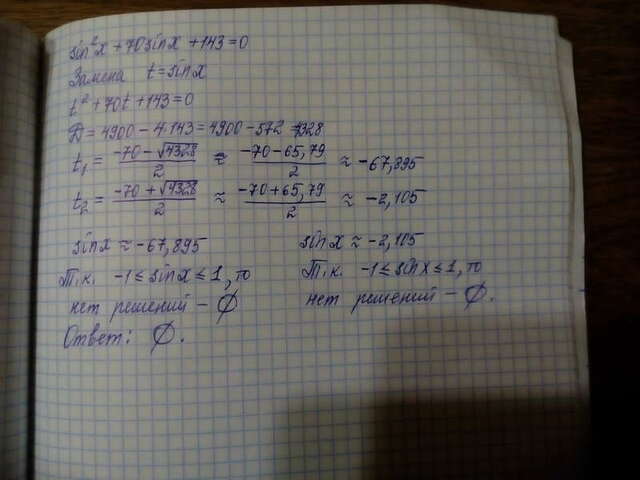 sin²x + 70sinx + 143 = 0
Замена t = sinx
t² + 70t + 143 = 0
D = 4900 − 4·143 = 4900 − 572 = 4328
t₁ = (−70 − √4328)/2 ≈ (−70 − 65,79)/2 ≈ −67,895
t₂ = (−70 + √4328)/2 ≈ (−70 + 65,79)/2 ≈ −2,105
sinx ≈ −67,895
Т.к. −1 ≤ sinx ≤ 1, то
нет решений − ∅
sinx ≈ −2,105
Т.к. −1 ≤ sinx ≤ 1, то
нет решений − ∅.
Ответ: ∅.